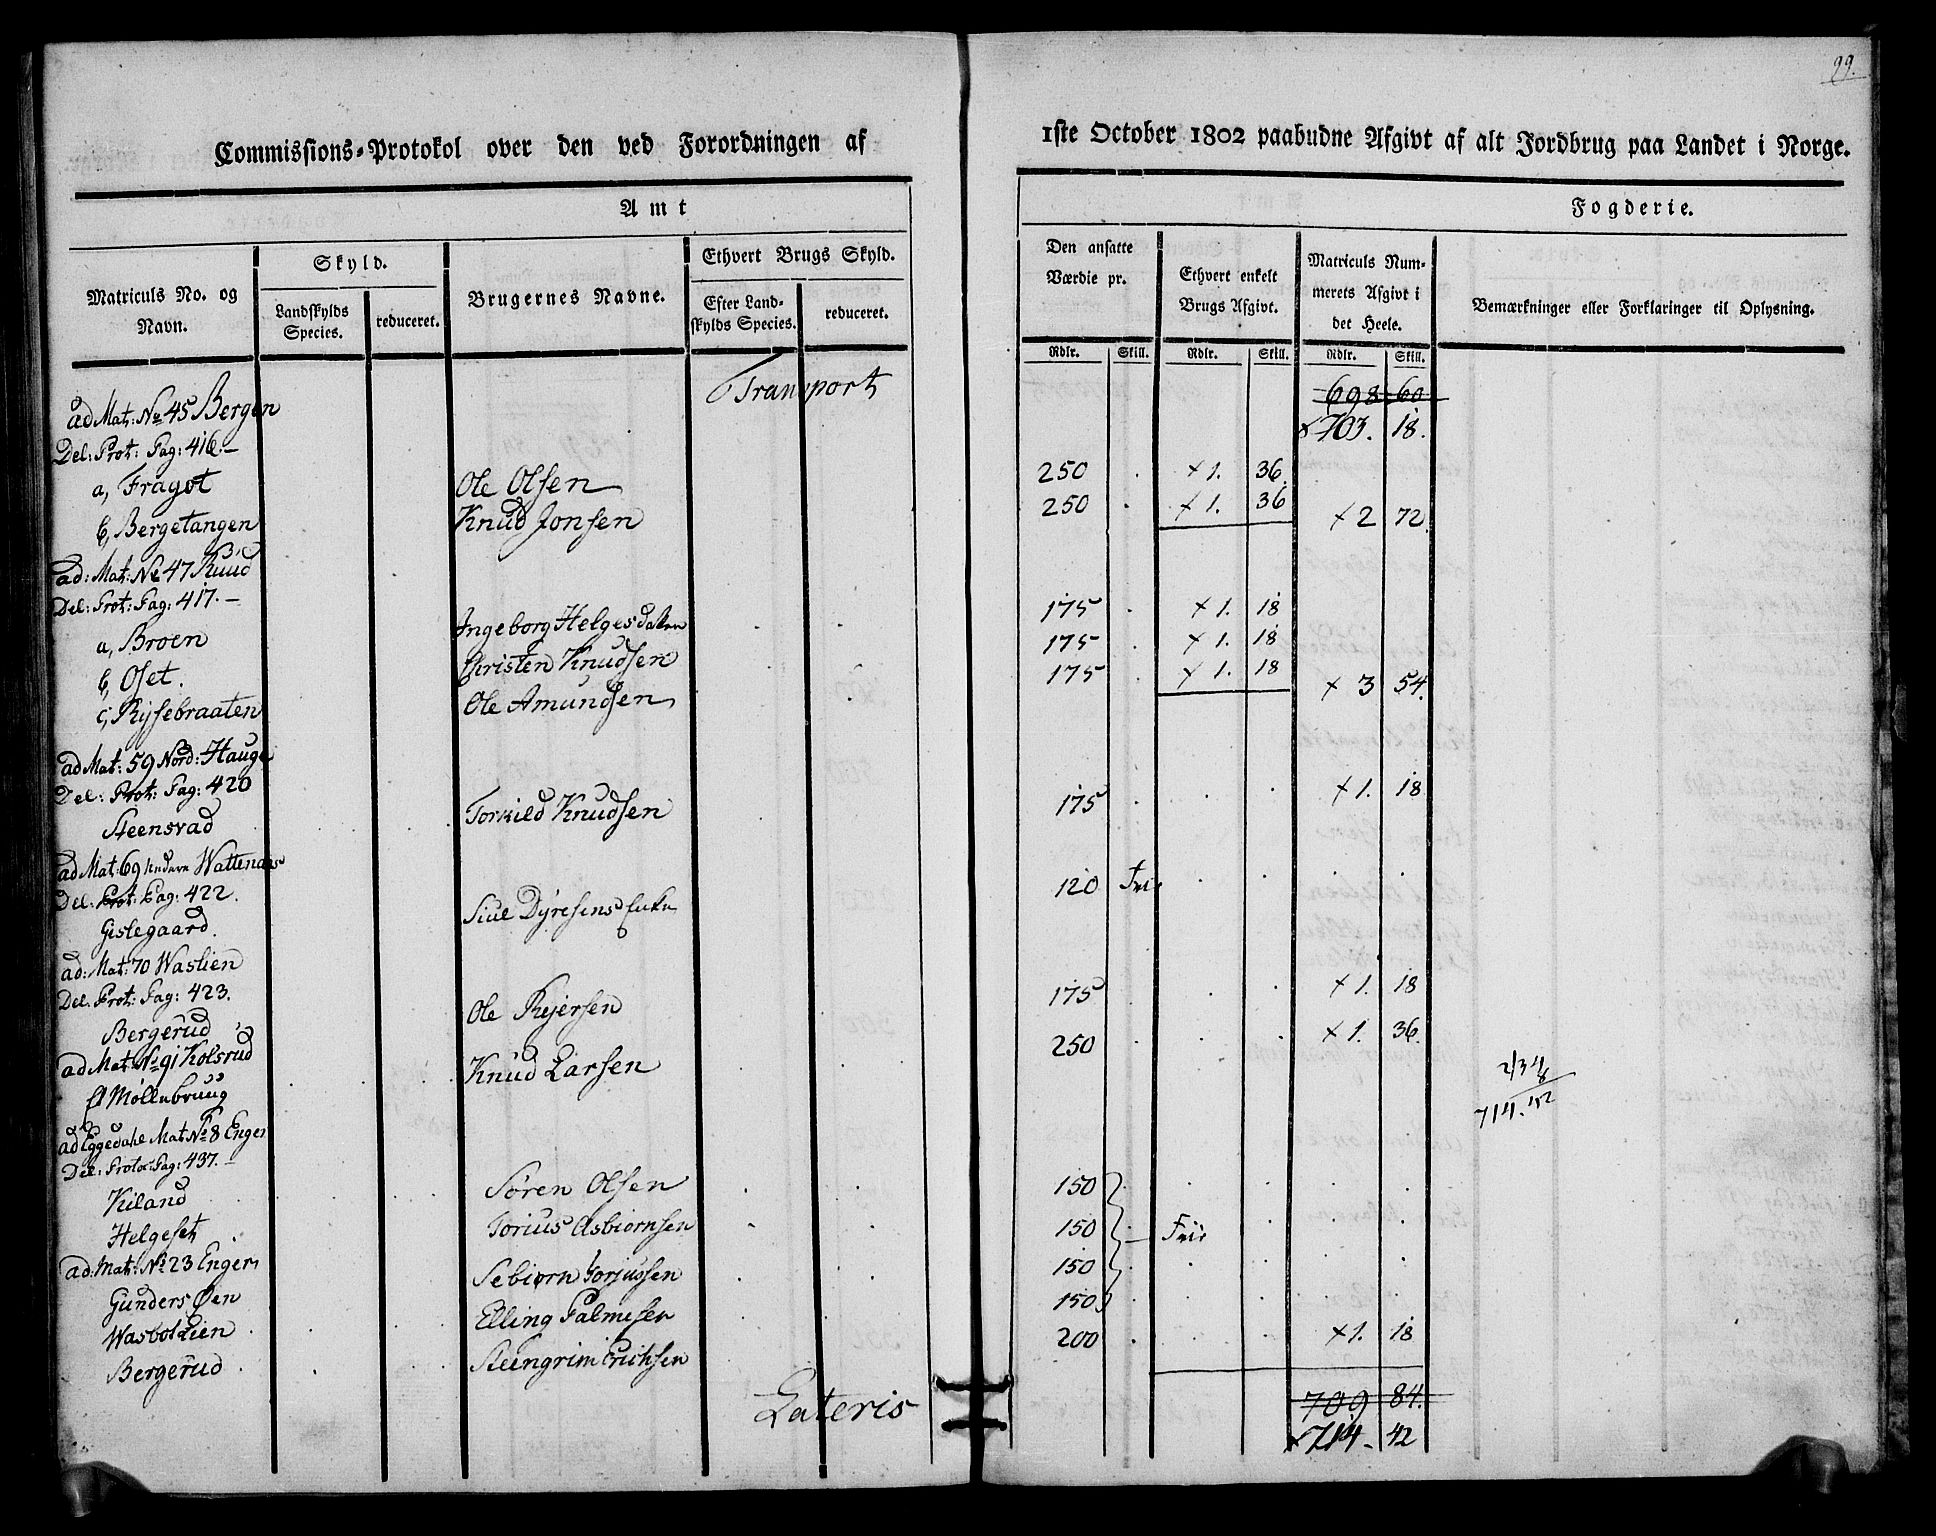 99.
Commissions-Protokol over den ved Forordningen af 1ste October 1802 paabudne Afgivt af alt Jordbrug paa Landet i Norge.
Amt Fogderie.
Matriculs No. og Navn. Skyld. Landskylds Species. reduceret. Brugernes Navne. Ethvert Brugs Skyld. Efter Landskylds Species. reduceret. Den ansatte Værdie pr. Ethvert enkelt Brugs Afgivt. Matriculs Nummerets Afgivt i det Heele. Bemærkninger eller Forklaringer til Oplysning.
Rdlr. Skill. Rdlr. Skill. Rdlr. Skill.
Transport 698 60
ad Mat: No 45 Bergen × 703. 18.
Del: Prot: Pag: 416.–
a, Fragot Ole Olsen 250 . × 1. 36.
b, Bergetangen Knud Jonsen 250 . × 1. 36 × 2 72
ad: Mat: No 47 Ruud
Del: Prot: Pag: 417.–
a, Broen Ingeborg Helgesdatter 175 . × 1. 18
b, Oset. Christen Knudsen 175 . × 1. 18
c, Rysebraaten Ole Amundsen 175 . × 1. 18 × 3 54.
ad Mat: 59 Nord: Hauge
Del: Prot: Pag: 420
Steensrad Torkild Knudsen 175 . × 1. 18
ad Mat: 69 Wattenaes
Del: Prot: Pag: 422.
Gislegaard. Siul Dyresens Enke 120 Frie
ad: Mat: 70 Waslien
Del. Prot: Pag: 423.
Bergerud Ole Rejersen 175 . × 1. 18
ad Mat: No 91 Kolsrud
Møllebruug Knud Larsen 250 . × 1. 36.
714. 42
ad Eggedahl Mat No 8 Enger
Del: Protoc: Pag: 437.–
Kiland Sören Olsen 150
Helgeset Torius Asbiornsen 150 Frie
ad: Mat: No 23 Enger Sebiørn Torjussen 150
Gunders Øen Elling Palmesen 150
Wasbotlien Steengrim Erichsen 200 . × 1. 18
Bergerud
Lateris 709 84.
× 714. 42